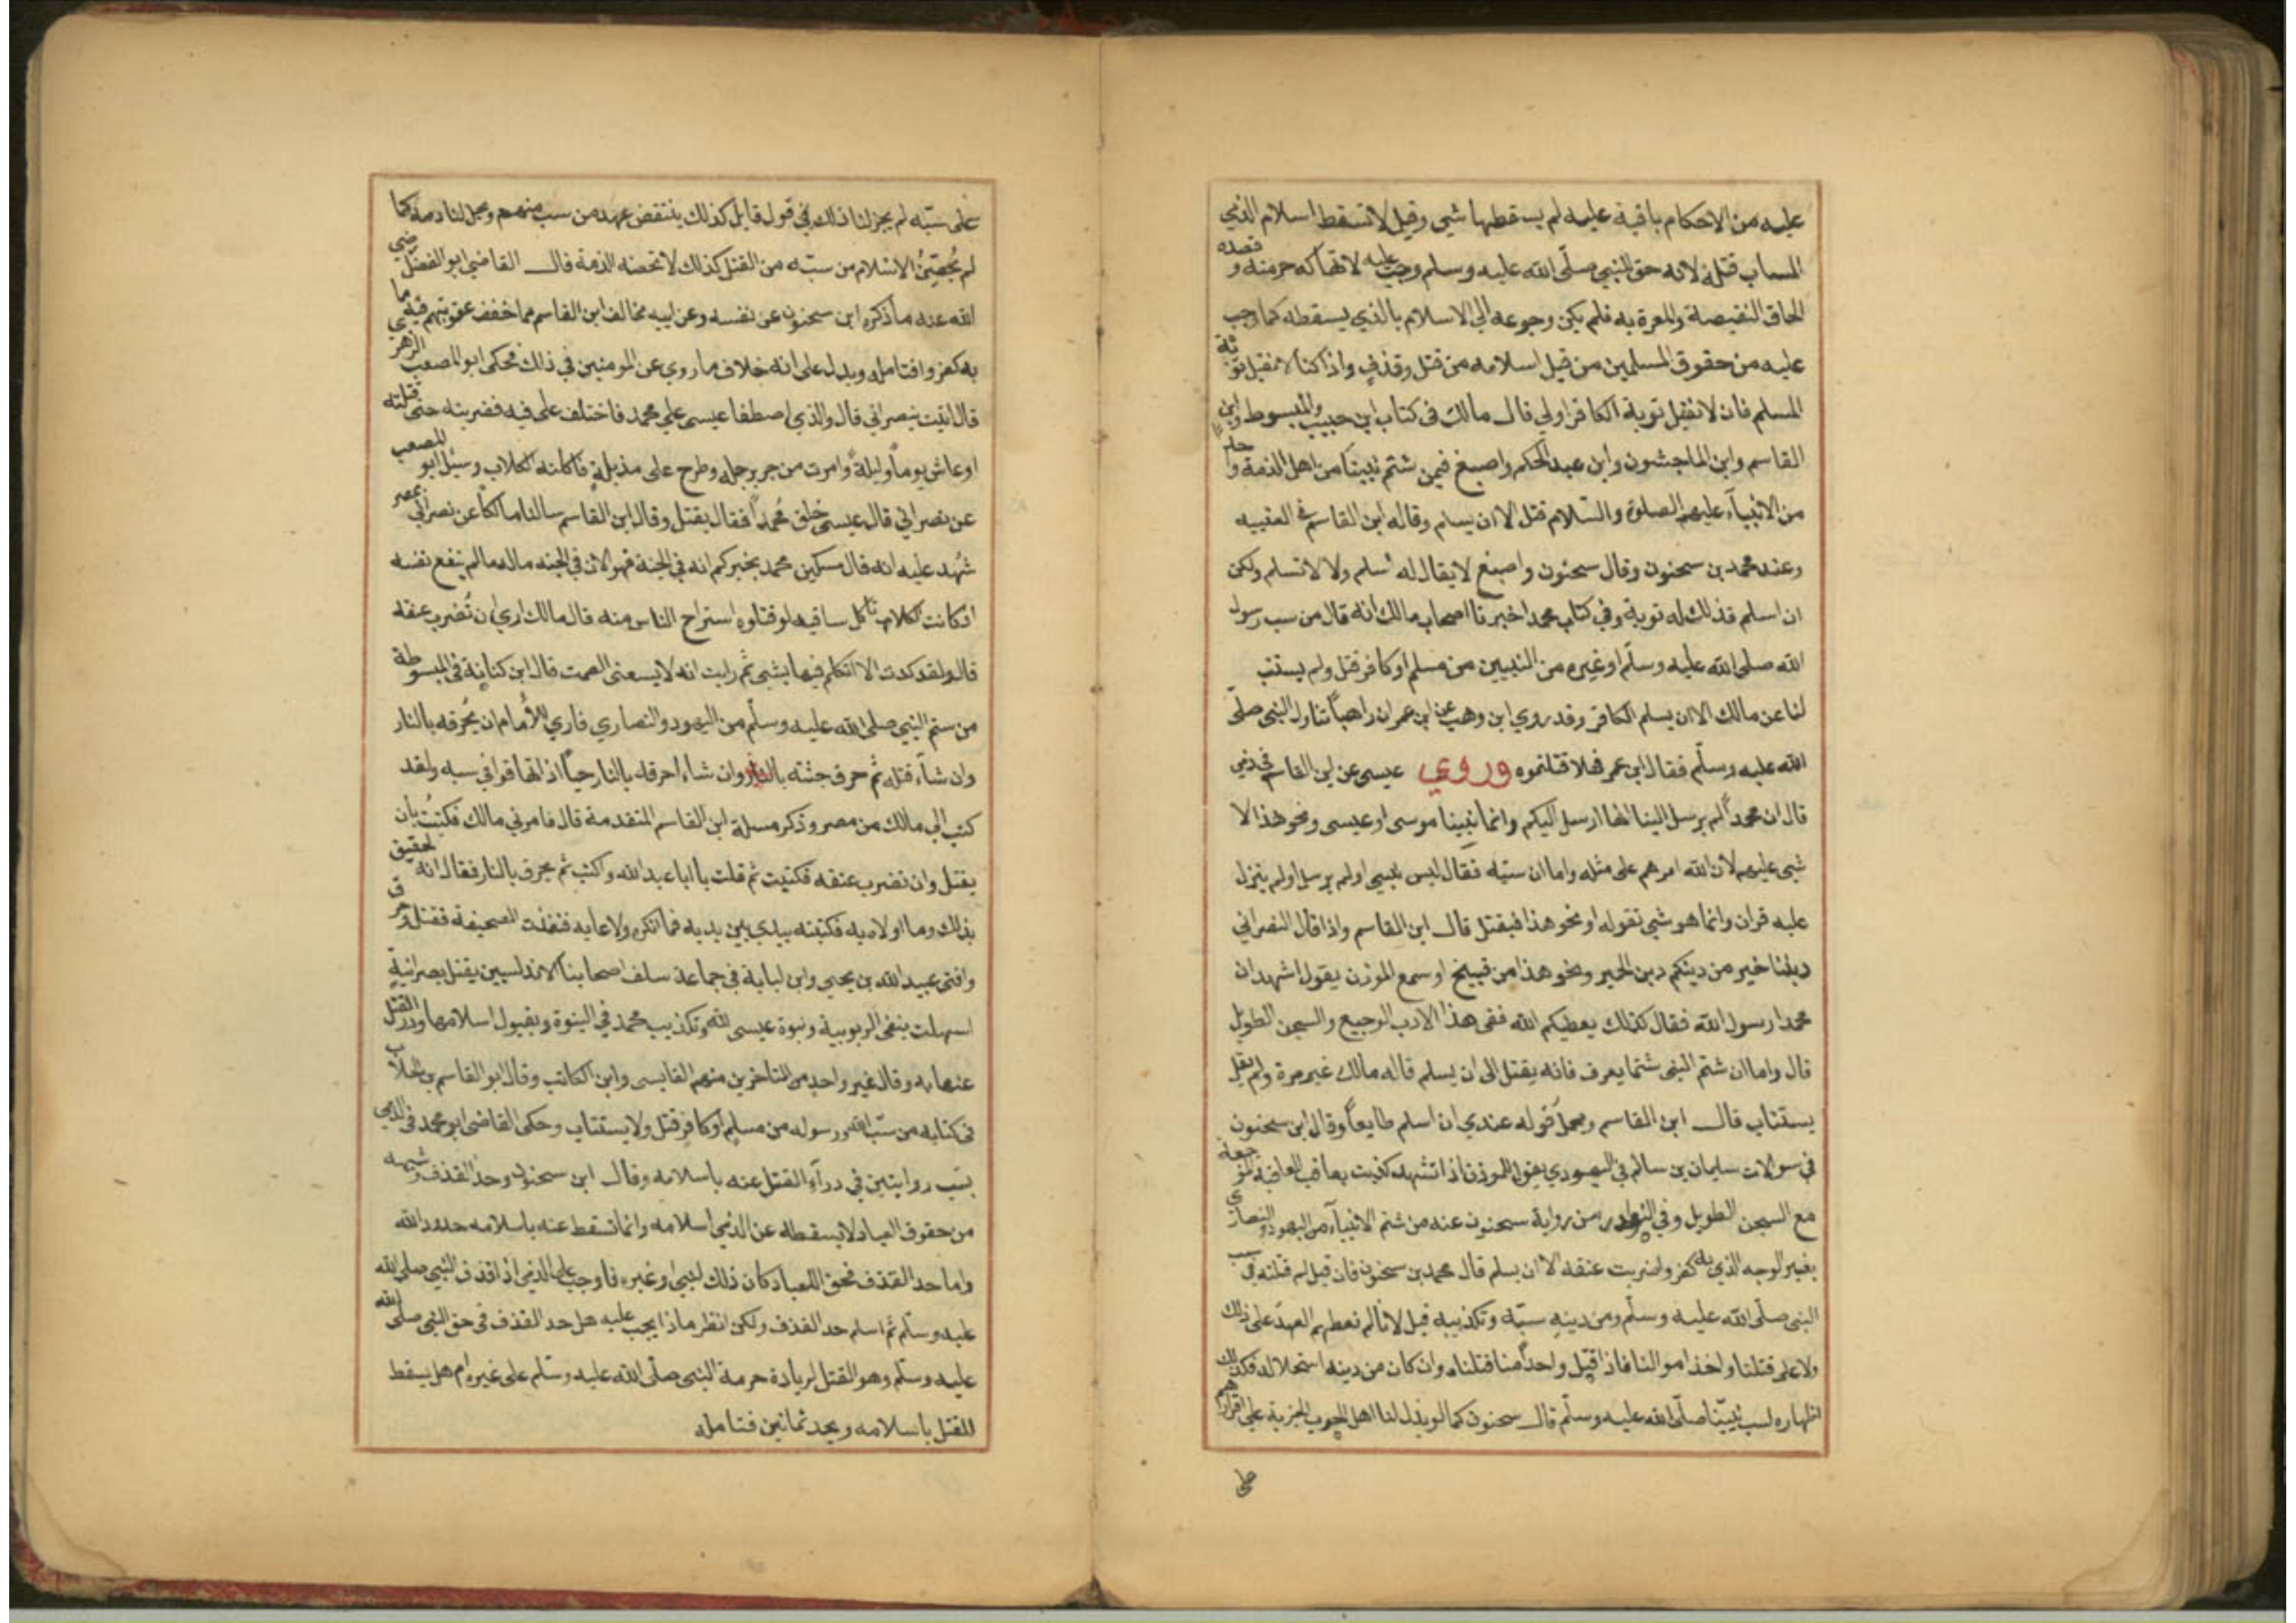 عليه من الاحكام باقية عليه لم يسقطها شي وقيل لا تسقط اسلام الذي
الساب قتله لانه حق للنبي صلى الله عليه وسلم وجب عليه لانتهاكه حرمته و قصده
الحاق النقيصة والمعرة به فلم يكن رجوعه الي الاسلام بالذي يسقطه كما وجب
عليه من حقوق المسلمين من قبل اسلامه من قتل وقذف واذا كنا لا نقبل توبة
المسلم فان لا نقبل توبة الكافر اولي قال مالك في كتاب ابن حبيب والمبسوط وابن
القاسم وابن الماجشون وابن عبد الحكم واصبغ فيمن شتم نبينا من اهل الذمة او احدا
من الانبياء عليهم الصلوة والسلام قتل الا ان يسلم وقاله ابن القاسم في العتبيه
وعند محمد بن سحنون وقال سحنون واصبغ لا يقال له اسلم ولا لا تسلم ولكن
ان اسلم فذلك له توبة وفي كتاب محمد اخبرنا اصحاب مالك انه قال من سب رسول
الله صلى الله عليه وسلم او غيره من النبيين من مسلم او كافر قتل ولم يستتب
لنا عن مالك الا ان يسلم الكافر وقد روي ابن وهب عن ابن عمر ان راهبا تناول النبي صلى
الله عليه وسلم فقال ابن عمر فهلا قتلتموه وروي عيسى عن ابن القاسم في ذمي
قال ان محمدا لم يرسل الينا انما ارسل اليكم وانما نبينا موسى او عيسى ونحو هذا لا
شي عليهم لان الله اقرهم على مثله واما ان سبه فقال ليس بنبي او لم يرسل او لم ينزل
عليه قران وانما هو شي تقوله او نحو هذا فيقتل قال ابن القاسم واذا قال النصراني
ديننا خير من دينكم دين الحمير ونحو هذا من قبيح او سمع المؤذن يقول اشهد ان
محمدا رسول الله فقال كذلك يعطيكم الله ففي هذا الادب الوجيع والسجن الطويل
قال واما ان شتم النبي شتما يعرف فانه يقتل الى ان يسلم قاله مالك غير مرة ولم يقل
يستتاب قال ابن القاسم ومحمل قوله عندي ان اسلم طايعا وقال ابن سحنون
في سولات سليمان بن سالم في اليهودي يقول للموذن اذا تشهد كذبت يعاقب العقوبة الموجعة
مع السجن الطويل وفي النوادر من رواية سحنون عنه من شتم الانبياء من اليهود والنصارى
بغير الوجه الذي به كفروا ضربت عنقه الا ان يسلم قال محمد بن سحنون فان قيل لم قتلته في سب
النبي صلى الله عليه وسلم ومن دينه سبه وتكذيبه قيل لانا لم نعطهم العهد على ذلك
ولا على قتلنا واخذ اموالنا فاذا قتل واحدا منا قتلناه وان كان من دينه استحلاله فكذلك
اظهاره لسب نبينا صلى الله عليه وسلم قال سحنون كما لو بذل لنا اهل الحرب الجزية على اقرارهم
على
على سبه لم يجز لنا ذلك في قول قايل كذلك ينتقض عهد من سب منهم ويحل لنا دمه كما
لم يحصن الاسلام من سبه من القتل كذلك لا تحصنه الذمة قال القاضي ابو الفضل رضي
الله عنه ما ذكره ابن سحنون عن نفسه وعن ابيه مخالف ابن القاسم مما خفف عقوبتهم فيه مما
به كفروا فتامله ويدل على انه خلاف ما روي عن المومنين في ذلك فحكى ابو المصعب الزهري
قال اتيت بنصراني قال والذي اصطفا عيسى علي محمد فاختلف علي فيه فضربته حتى قتلته
او عاش يوما وليلة وامرت من جر برجله وطرح على مزبلة فاكلته الكلاب وسئل ابو المصعب
عن نصراني قال عيسى خلق محمدا فقال يقتل وقال ابن القاسم سالنا مالكا عن نصراني بمصر
شهد عليه انه قال مسكين محمد يخبركم انه في الجنة فهو الان في الجنه ماله ما لم ينفع نفسه
اذ كانت الكلاب تاكل ساقيه لو قتلوه استراح الناس منه قال مالك اري ان تضرب عنقه
قال ولقد كدت الا اتكلم فيها بشي ثم رايت انه لا يسعني الصمت قال ابن كنانة في المبسوطة
من ستم النبي صلى الله عليه وسلم من اليهود والنصاري فاري للامام ان يحرقه بالنار
وان شاء قتله ثم حرق جثته بالنار وان شاء احرقه بالنار حيا اذا تهافتوا في سبه ولقد
كتب الي مالك من مصر وذكر مسلة ابن القاسم المتقدمة قال فامرني مالك فكتبت بأن
يقتل وان تضرب عنقه فكتبت ثم قلت يا ابا عبد الله واكتب ثم يحرق بالنار فقال انه لحقيق
بذلك وما اولاه به فكتبته بيدي بين يديه فما انكره ولا عابه فنفذت الصحيفة فقتل وحرق
وافتى عبيد الله بن يحيي وابن لبابة في جماعة سلف اصحابنا الاندلسيين بقتل نصرانية
استهلت بنفي الربوبية ونبوة عيسى لله وتكذيب محمد في النبوة وبقبول اسلامها ودرء القتل
عنها به وقال غير واحد من المتاخرين منهم القابسى وابن الكاتب وقال ابو القاسم بن الجلاب
في كتابه من سب الله ورسوله من مسلم او كافر قتل ولا يستتاب وحكى القاضى ابو محمد في الذمي
يسب روايتين في درآء القتل عنه باسلامه وقال ابن سحنون وحد القذف وشبهه
من حقوق العباد لا يسقطه عن الذمي اسلامه وانما تسقط عنه باسلامه حدود الله
واما حد القذف فحق للعباد كان ذلك لنبي او غيره فاوجب على الذمي اذا قذف النبي صلى الله
عليه وسلم ثم اسلم حد القذف ولكن انظر ماذا يجب عليه هل حد القذف في حق النبي صلى الله
عليه وسلم وهو القتل لزيادة حرمة النبي صلى الله عليه وسلم على غيره ام هل يسقط
القتل باسلامه ويحد ثمانين فتامله